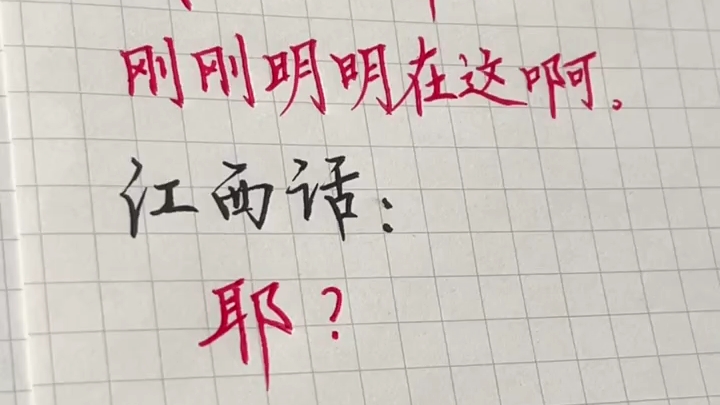 刚刚明明在这啊。
江西话：
耶？